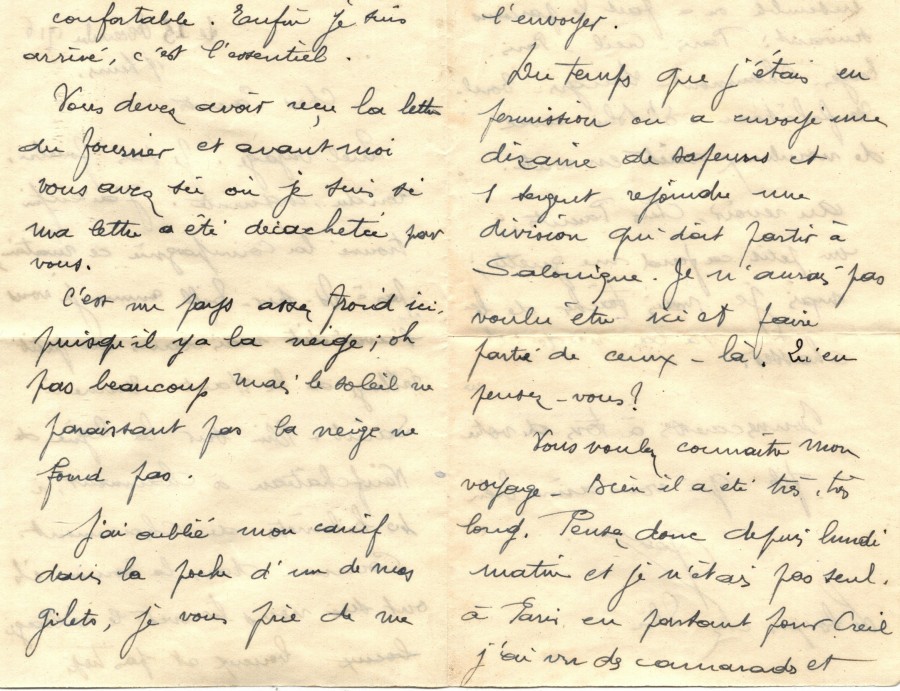 confortable. Enfin je suis
arrivé, c'est l'essentiel.
Vous devez avoir reçu la lettre
du fourrier et avant moi
vous avez su où je suis si
ma lettre a été décachetée par
vous.
C'est un pays assez froid ici,
puisqu'il y a la neige ; oh
pas beaucoup mais le soleil ne
paraissant pas la neige ne
fond pas.
J'ai oublié mon canif
dans la poche d'un de mes
gilets, je vous prie de me
l'envoyer.
Du temps que j'étais en
permission on a envoyé une
dizaine de sapeurs et
1 sergent rejoindre une
division qui doit partir à
Salonique. Je n'aurais pas
voulu être ici et faire
partie de ceux-là. Qu'en
pensez-vous ?
Vous voulez connaître mon
voyage. Bien il a été très, très
long. Pensez donc depuis lundi
matin et je n'étais pas seul.
à Paris en partant pour Creil
j'ai vu des camarades et